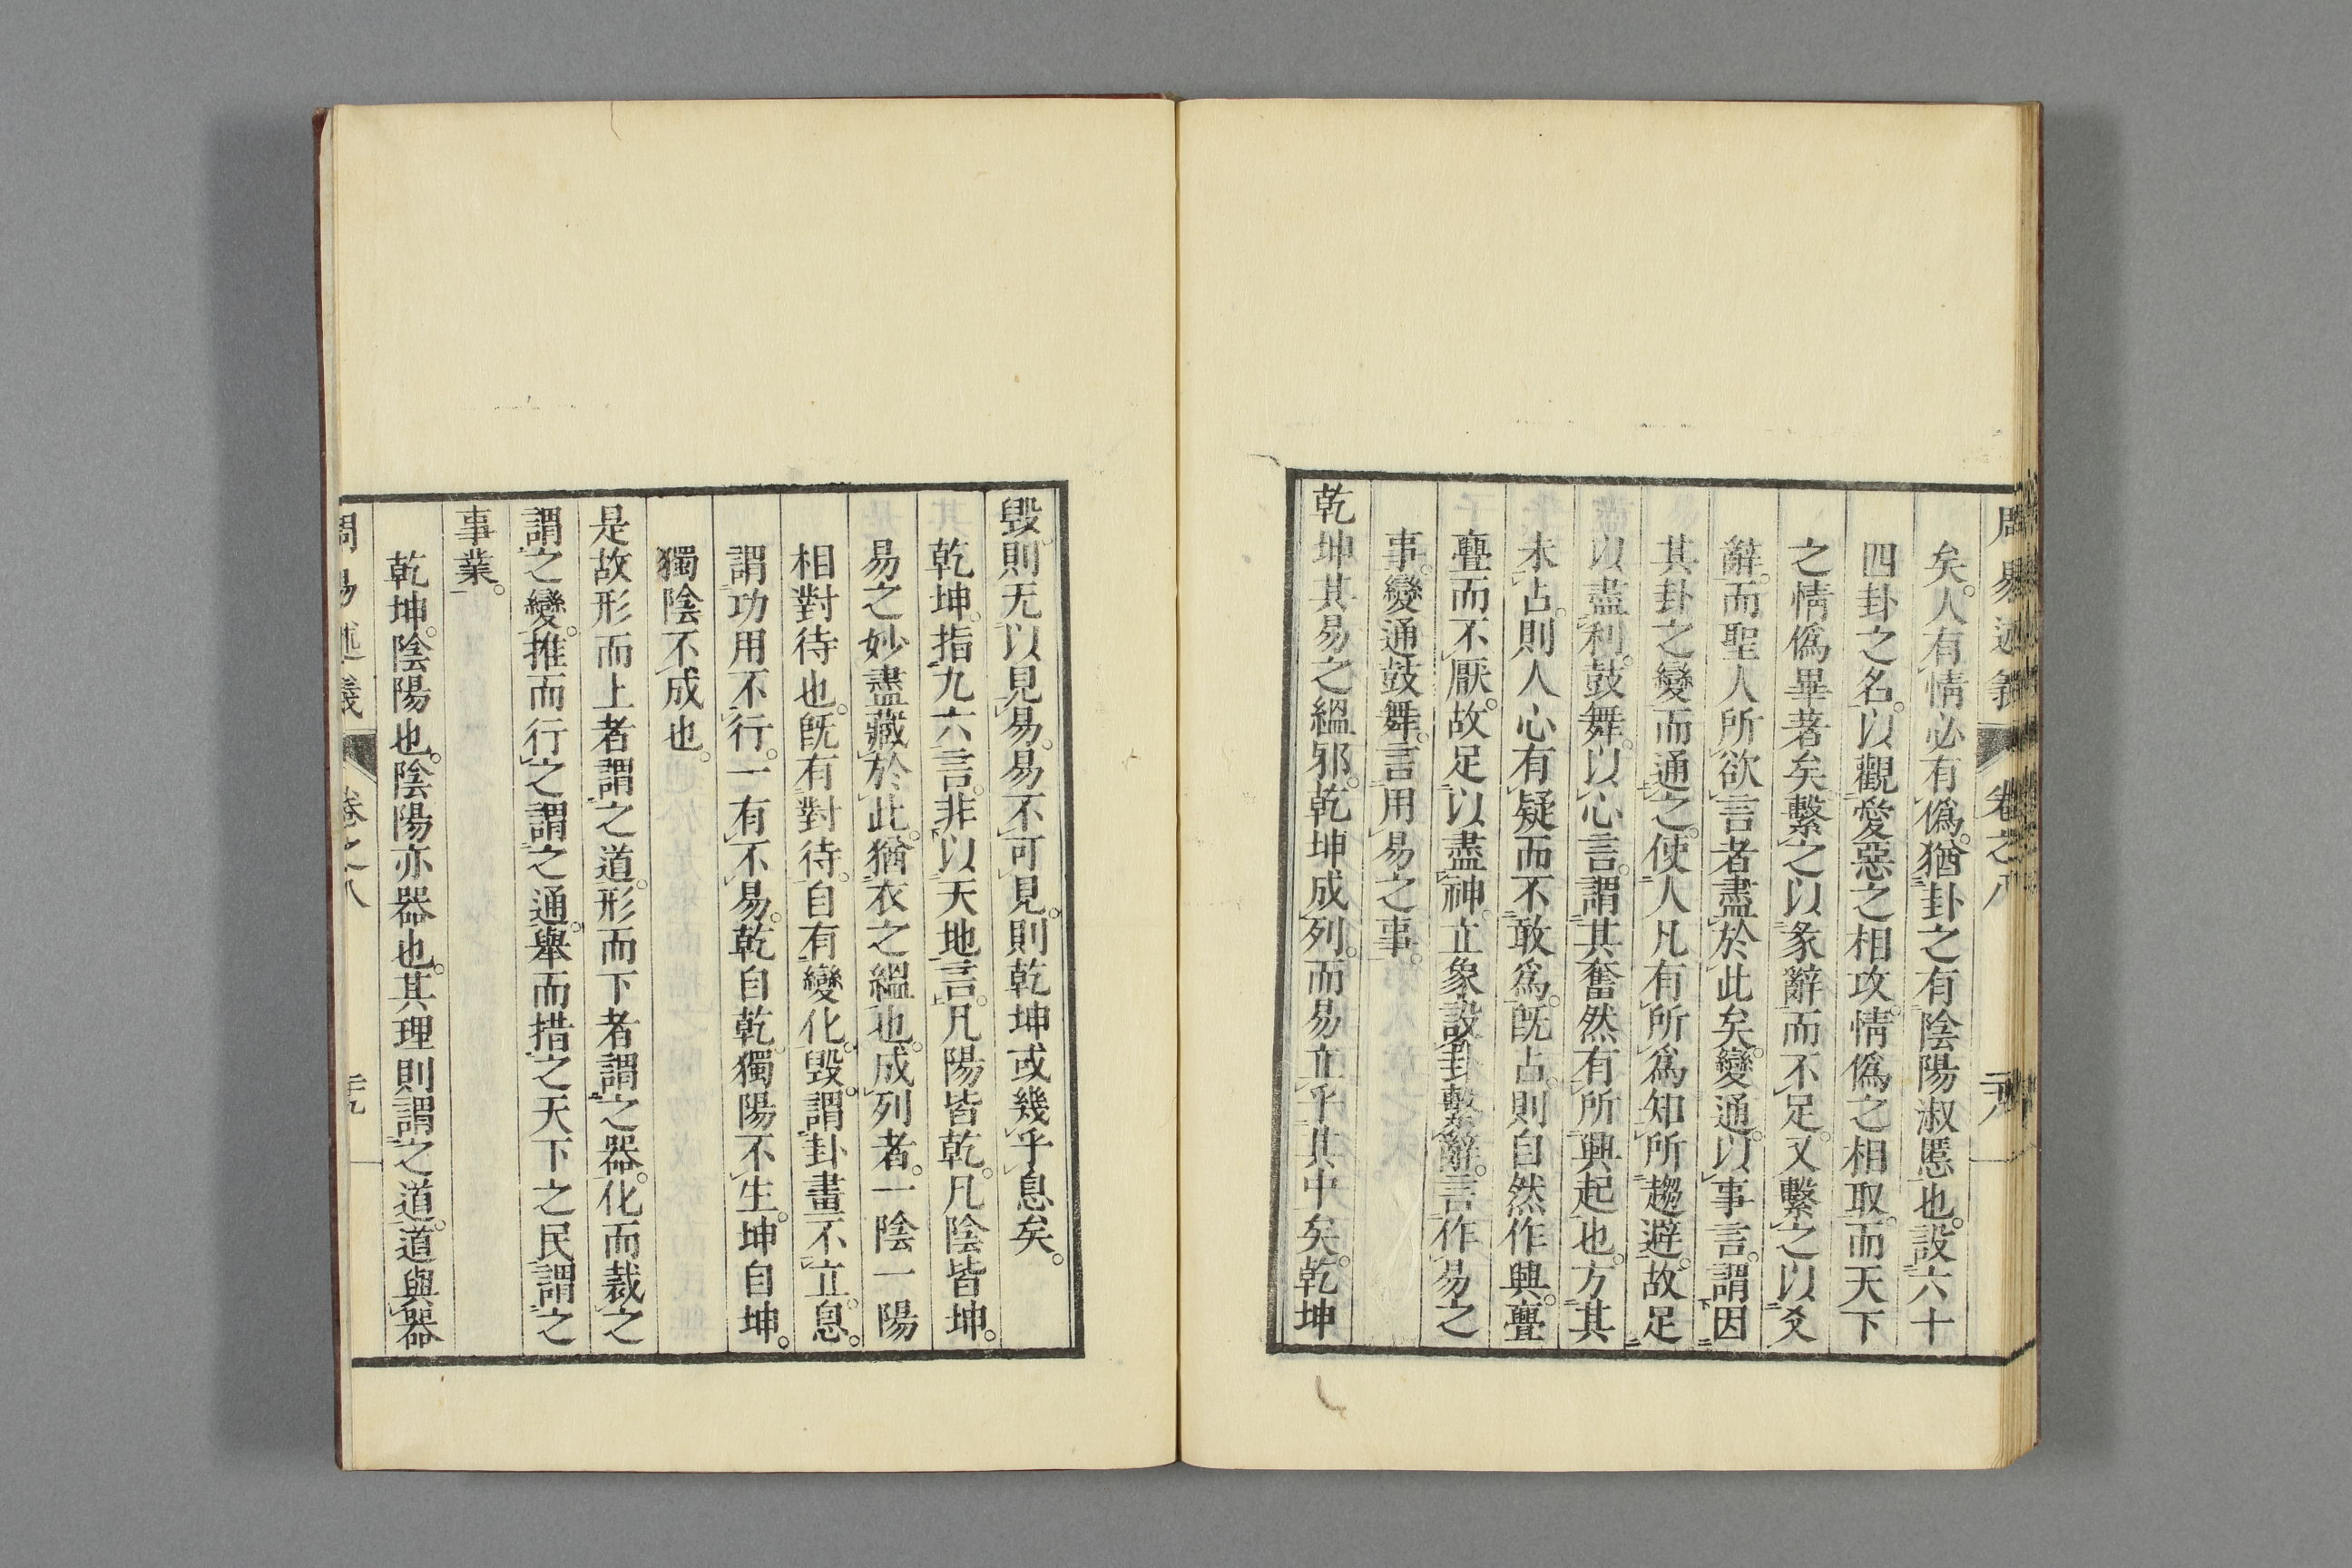 周易述義 卷之八
矣。人有情必有僞。猶卦之有陰陽淑慝也。設六十
四卦之名。以觀愛惡之相攻。情僞之相取。而天下
之情僞畢著矣繫之以彖辭而不足。又繫之以爻
辭。而聖人所欲言者盡於此矣。變通。以事言。謂因
其卦之變而通之。使人凡有所爲知所趨避。故足
以盡利。鼓舞。以心言。謂其奮然有所興起也。方其
未占。則人心有疑而不敢爲。既占。則自然作興。亹
亹而不厭。故足以盡神。立象設卦繫辭。言作易之
事。變通鼓舞。言用易之事。
乾坤其易之縕邪。乾坤成列。而易立乎其中矣。乾坤
毀。則无以見易。易不可見。則乾坤或幾乎息矣。
乾坤。指九六言。非以天地言。凡陽皆乾。凡陰皆坤。
易之妙盡藏於此。猶衣之縕也。成列者。一陰一陽
相對待也。既有對待。自有變化。毀。謂卦畫不立。息。
謂功用不行。一有不易。乾自乾。獨陽不生。坤自坤。
獨陰不成也。
是故形而上者謂之道。形而下者謂之器。化而裁之
謂之變。推而行之謂之通。舉而措之天下之民。謂之
事業。
乾坤。陰陽也。陰陽亦器也。其理則謂之道。道與器
周易述義 卷之八 三九